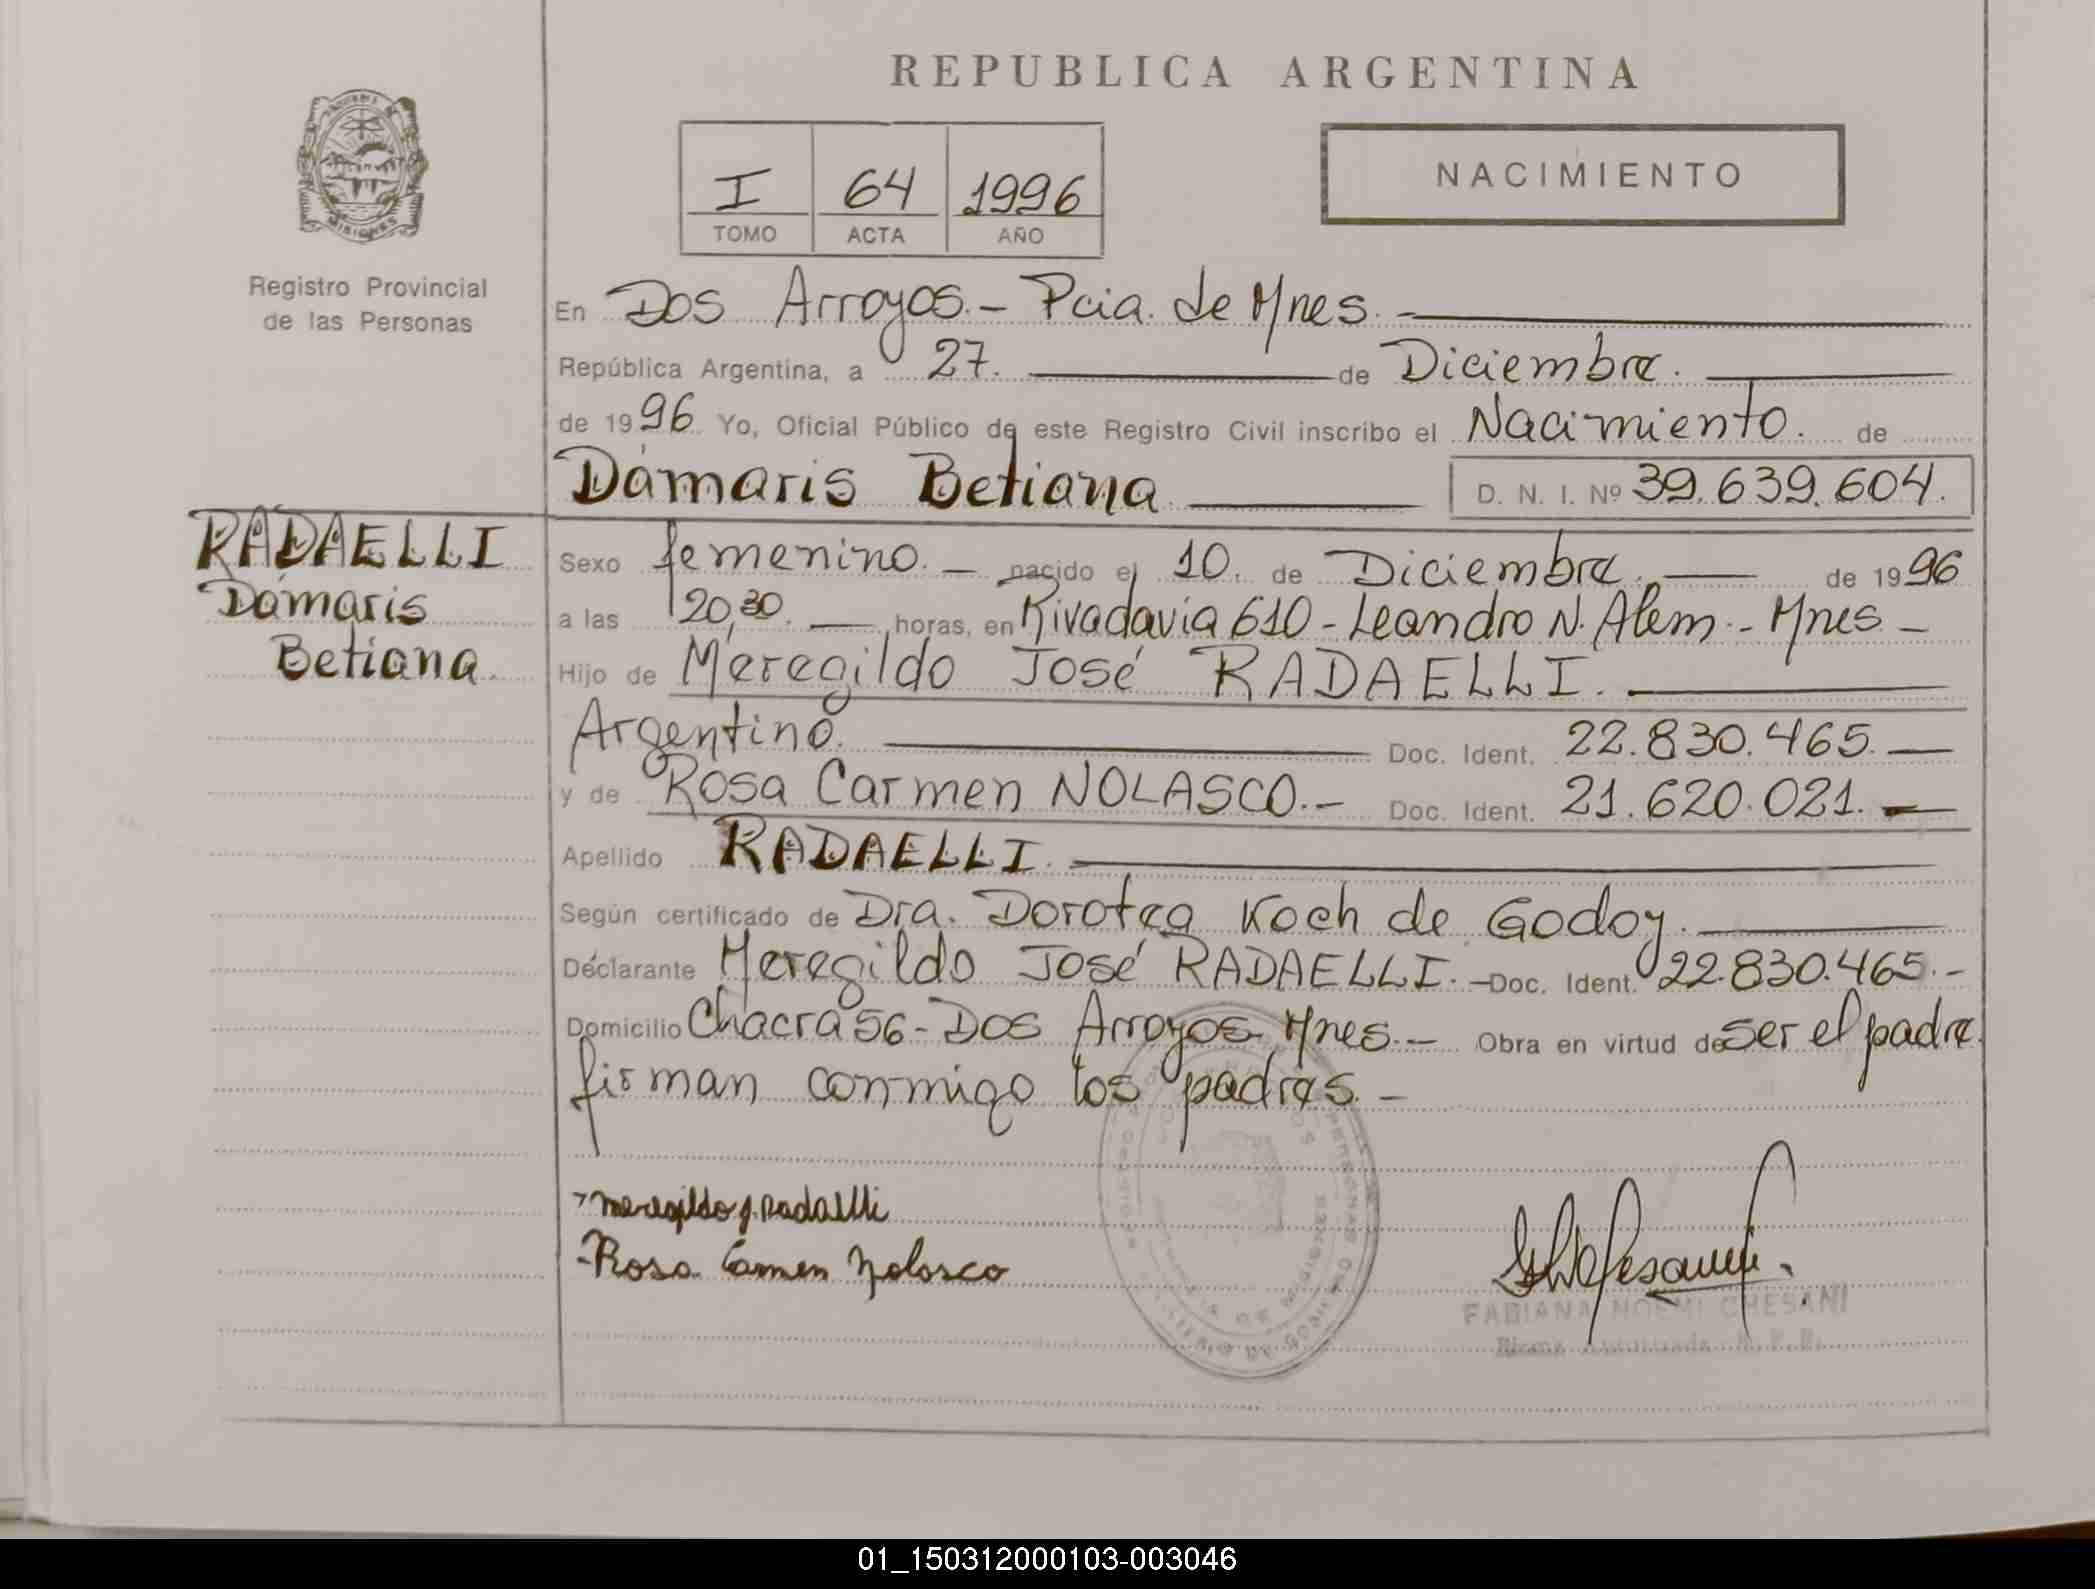 REPUBLICA ARGENTINA
MISIONES
Registro Provincial
de las Personas
I 64 1996
TOMO ACTA AÑO
NACIMIENTO
En Dos Arroyos.- Pcia. de Mnes.-
República Argentina, a 27. de Diciembre.
de 1996 Yo, Oficial Público de este Registro Civil inscribo el Nacimiento. de
Dámaris Betiana D. N. I. Nº 39.639.604.
RADAELLI
Dámaris
Betiana.
Sexo femenino.- nacido el 10. de Diciembre. de 1996
a las 20,30. horas, en Rivadavia 610 - Leandro N. Alem.- Mnes.-
Hijo de Meregildo José RADAELLI.
Argentino. Doc. Ident. 22.830.465.-
y de Rosa Carmen NOLASCO.- Doc. Ident. 21.620.021.-
Apellido RADAELLI.
Según certificado de Dra. Dorotea Koch de Godoy.
Declarante Meregildo José RADAELLI.- Doc. Ident. 22.830.465.-
Domicilio Chacra 56 - Dos Arroyos. Mnes.- Obra en virtud de ser el padre.
firman conmigo los padres.-
Meregildo J. Radaelli
Rosa Carmen Nolasco
FABIANA NOEMI CHESANI
01_150312000103-003046